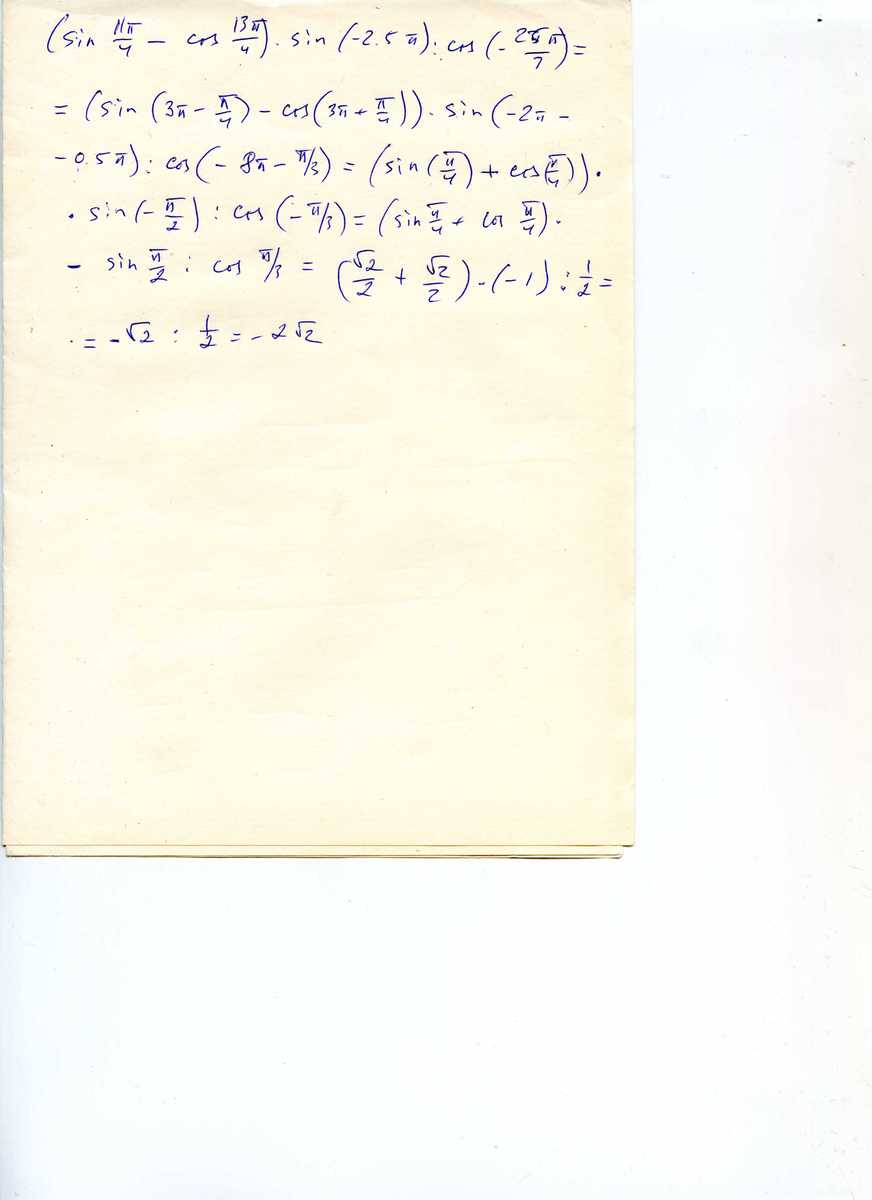 (sin 11π/4 − cos 13π/4) · sin (−2.5π) : cos (−25π/7) =
= (sin (3π − π/4) − cos(3π + π/4)) · sin (−2π −
− 0.5π) : cos (− 8π − π/3) = (sin (π/4) + cos(π/4)) ·
· sin (−π/2) : cos (−π/3) = (sin π/4 + cos π/4) ·
− sin π/2 : cos π/3 = (√2/2 + √2/2) · (−1) : 1/2 =
· = −√2 : 1/2 = −2√2